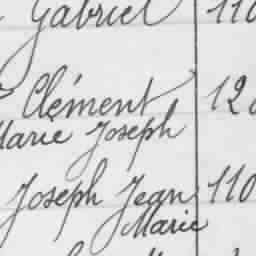 Gabriel 110
Clément 12
Marie Joseph
Joseph Jean 110
Marie